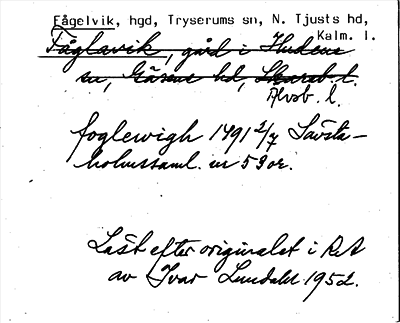 Fågelvik, hgd, Tryserums sn, N. Tjusts hd,
Kalm. l.
Fåglavik, gård i Hudene
sn, Gäsene hd, Skarab. l.
Älvsb. l.
foglewigh 1491 2/7 Sävsta-
holmssaml. nr 59 or.
Läst efter originalet i RA
av Ivar Lundahl 1952.